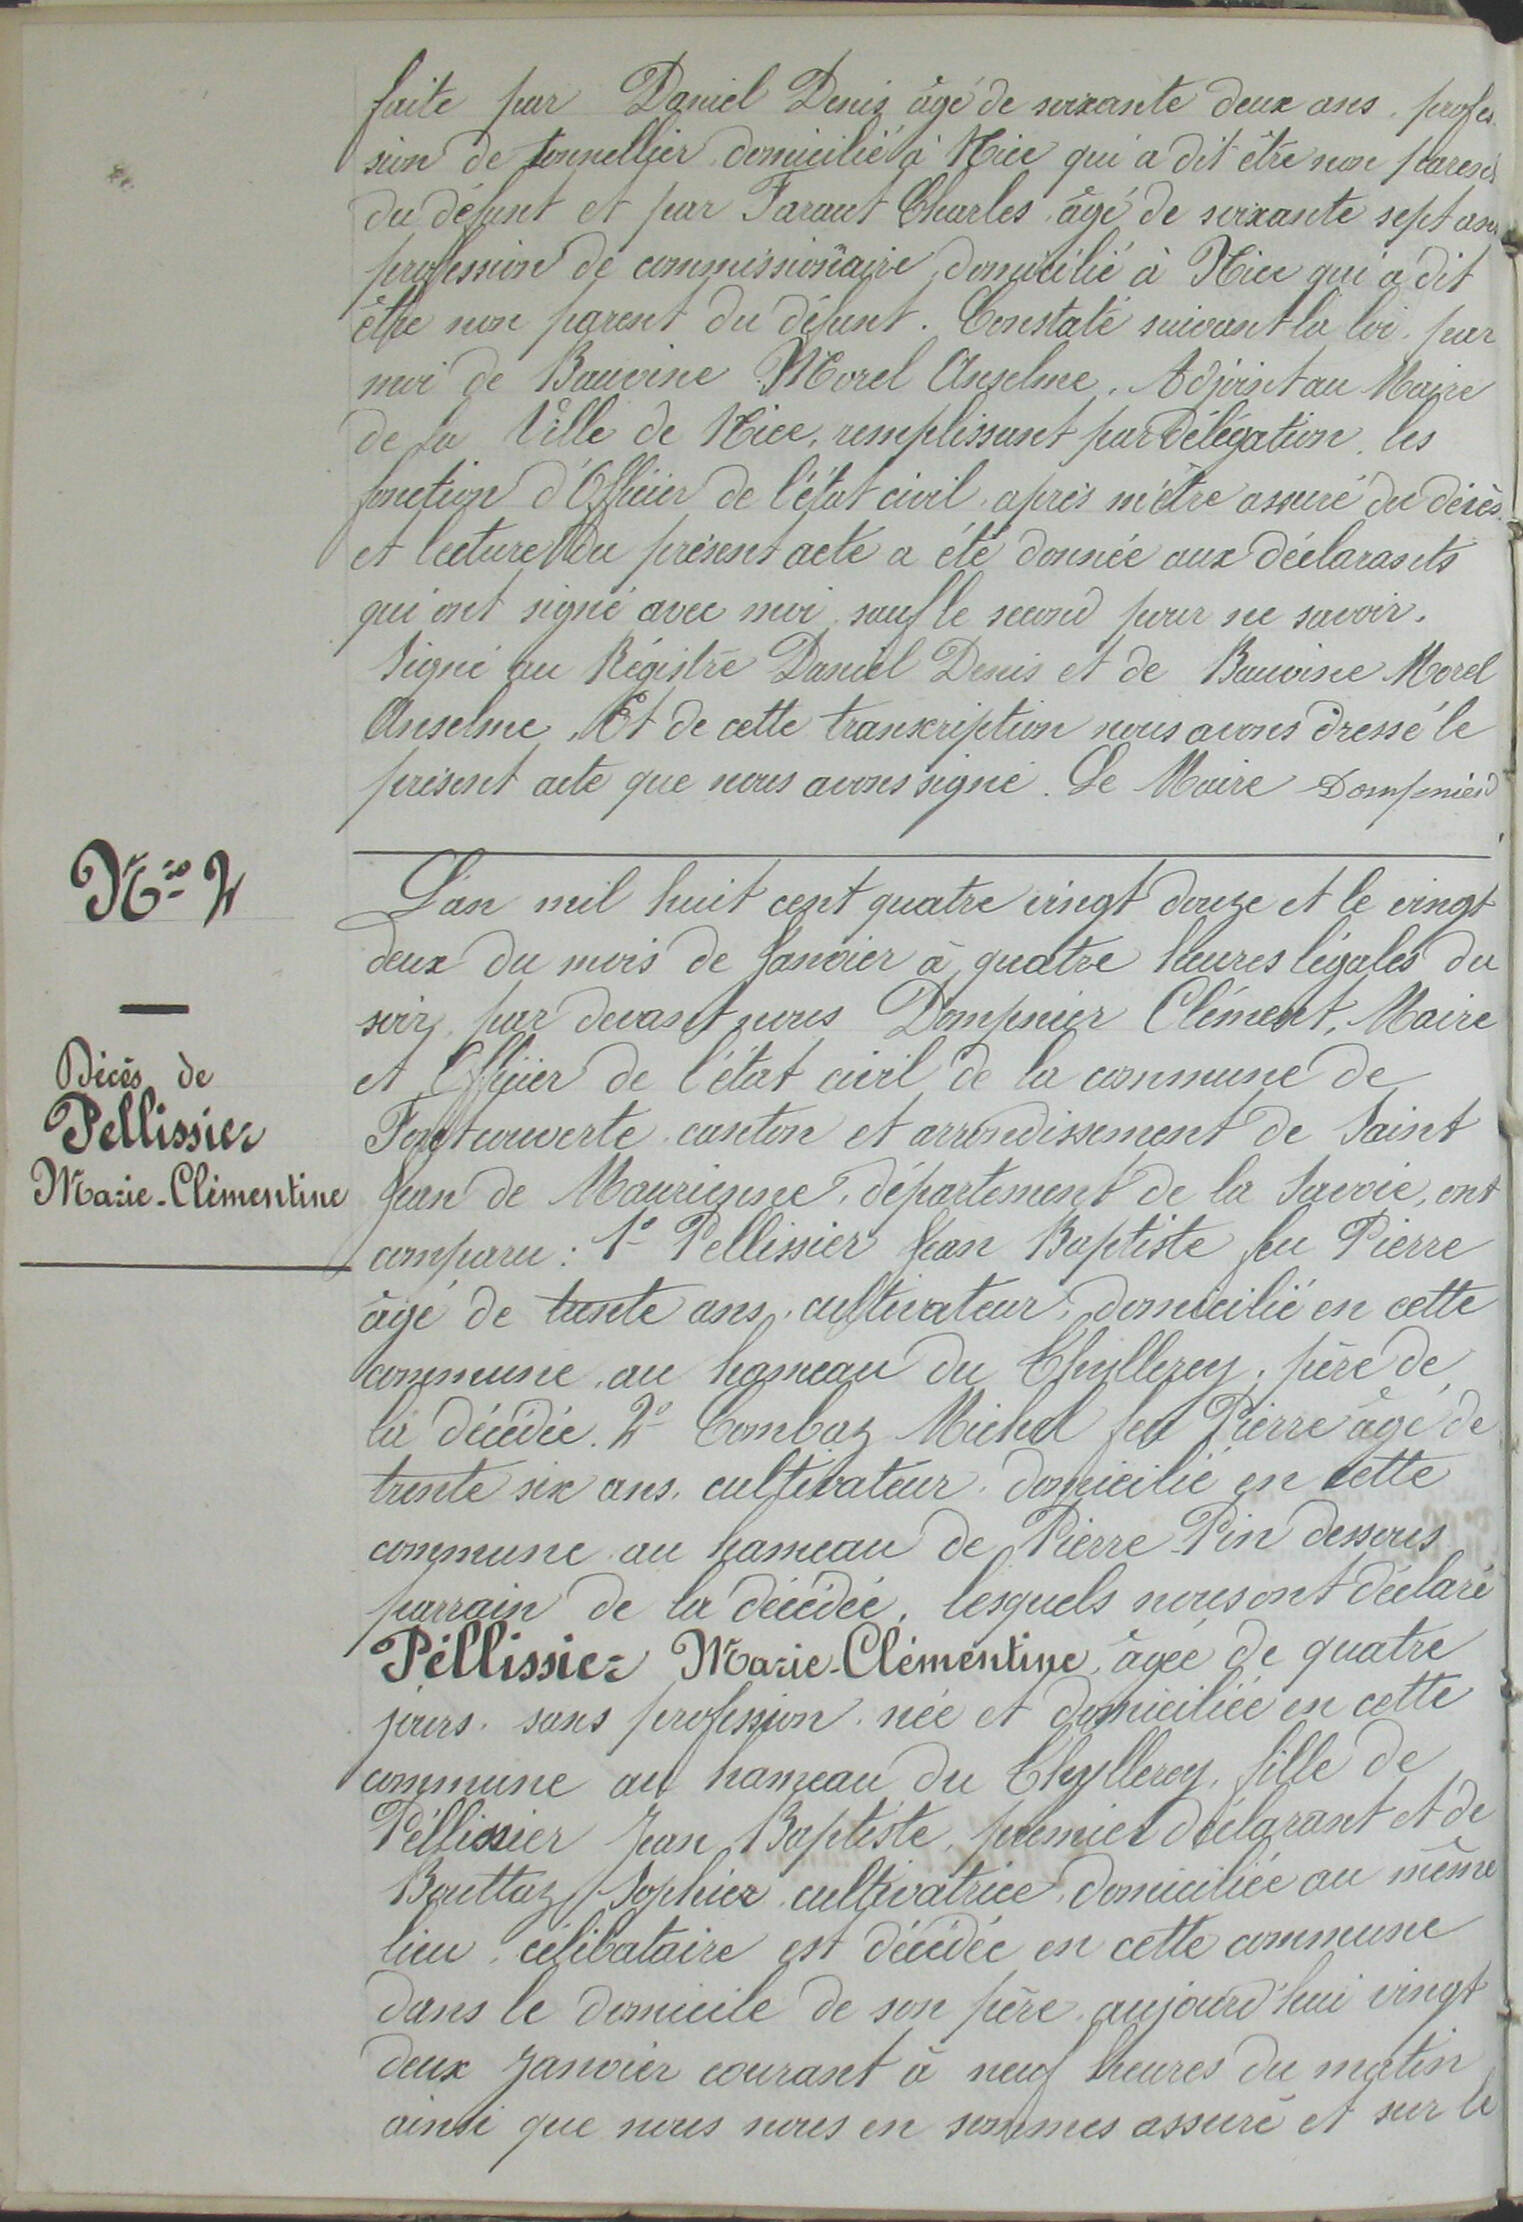 faite par Daniel Denis âgé de soixante deux ans, profes
sion de tonnellier domicilié à Nice qui a dit être non parent
du défunt et par Faraut Charles âgé de soixante sept ans
profession de commissionaire domicilié à Nice qui a dit
être non parent du défunt. Constaté suivant la loi, par
moi de Bauvine Morel Anselme, Adjoint au Maire
de la Ville de Nice, remplissant par délégation les
fonction d'Officier de l'état civil après m'être assuré du décès
et lecture du présent acte a été donnée aux déclarants
qui ont signé avec moi sauf le second pour ne savoir.
Signé au Régistre Daniel Denis et de Bauvine Morel
Anselme. Et de cette transcription nous avons dressé le
présent acte que nous avons signé. Le Maire Dompnier
Nro 2
Décès de
Pellissier
Marie-Clémentine
L'an mil huit cent quatre vingt douze et le vingt
deux du mois de Janvier à quatre heures légales du
soir, par devant nous Dompnier Clément, Maire
et Officier de l'état civil de la commune de
Fontcouverte canton et arrondissement de Saint
Jean de Maurienne, département de la Savoie, ont
comparu : 1° Pellissier Jean Baptiste feu Pierre
âgé de trente ans, cultivateur, domicilié en cette
commune, au hameau du Thyllerey, père de
la décédée. 2° Combaz Michel feu Pierre âgé de
trente six ans, cultivateur, domicilié en cette
commune au hameau de Pierre-Pin dessous
parrain de la décédée, lesquels nous ont déclaré
Péllissier Marie-Clémentine, âgée de quatre
jours, sans profession, née et domiciliée en cette
commune au hameau du Thyllerey, fille de
Péllissier Jean Baptiste, premier déclarant et de
Bouttaz Sophie cultivatrice, domiciliée au même
lieu, célibataire est décédée en cette commune
dans le domicile de son père, aujourd'hui vingt
deux Janvier courant à neuf heures du matin
ainsi que nous nous en sommes assuré et sur la